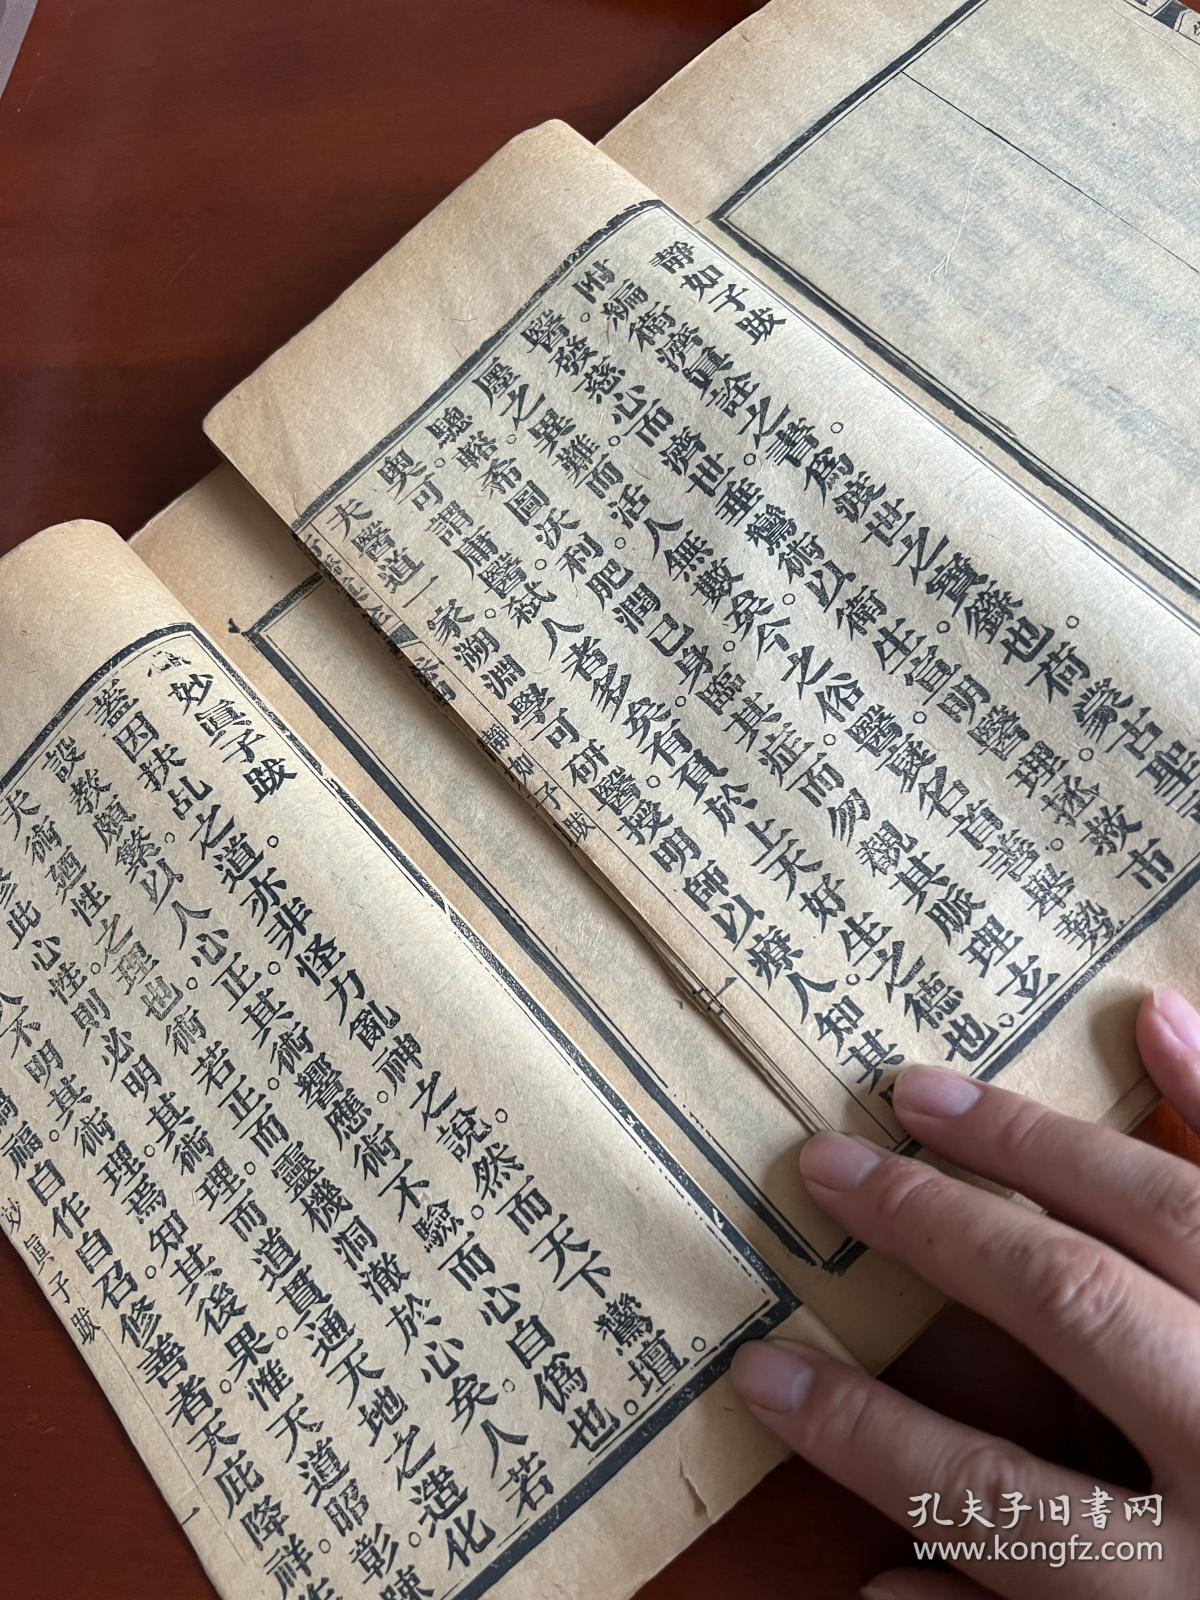 靜如子跋
附編衛濟眞詮之書。爲渡世之寶籙也。荷蒙古聖
醫。發慈心而濟世。垂鸞術以衛生。宣明醫理。拯救市
墨之。異難而活人無數矣。今之俗醫。名首善。舉勢
驄輅。希圖沃利肥潤已身。臨其症而勿觀其脈理玄
奥。可謂庸醫弒人者多矣。有負於上天好生之德也。
夫醫道一家。溯淵學可研醫。授明師以療人。知其
靜如子跋 一
妙眞子跋
蓋因扶乩之道。亦非怪力亂神之說。然而天下鸞壇。
設教頗繁。以人心正。其術響應。術不驗而心自僞也。
夫術廼性之理也。術若正。而靈機洞澈於心矣。人若
參此心性。則必明其術理。而道貫通天地之造化
人不明其術理。焉知其後果。惟天道昭彰。疎
禍福。自作自召。修善者。天庇降祥。作
妙眞子跋 一
孔夫子旧书网
www.kongfz.com